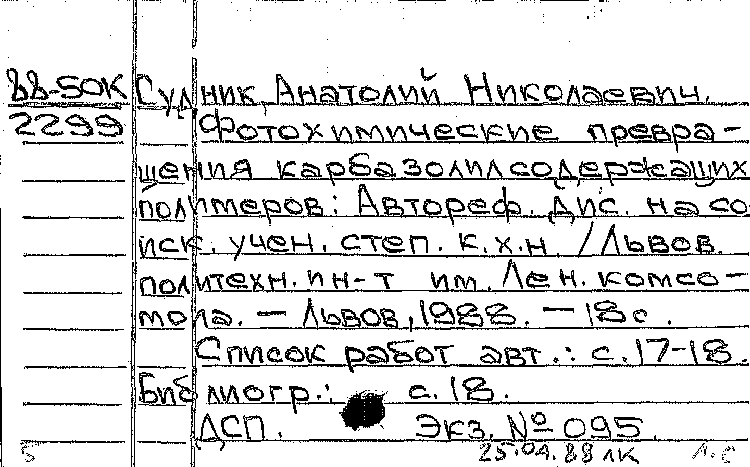 88-50К Судник, Анатолий Николаевич.
2299 Фотохимические превра-
щения карбазолилсодержащих
полимеров: Автореф. дис. на со
иск. учен. степ. к.х.н. / Львов.
политехн. ин-т им. Лен. комсо-
мола. — Львов, 1988. — 18 с.
Список работ авт.: с. 17-18.
Библиогр.: с. 18.
ДСП. Экз. № 095.
5 25.04.88 ЛК Л.С